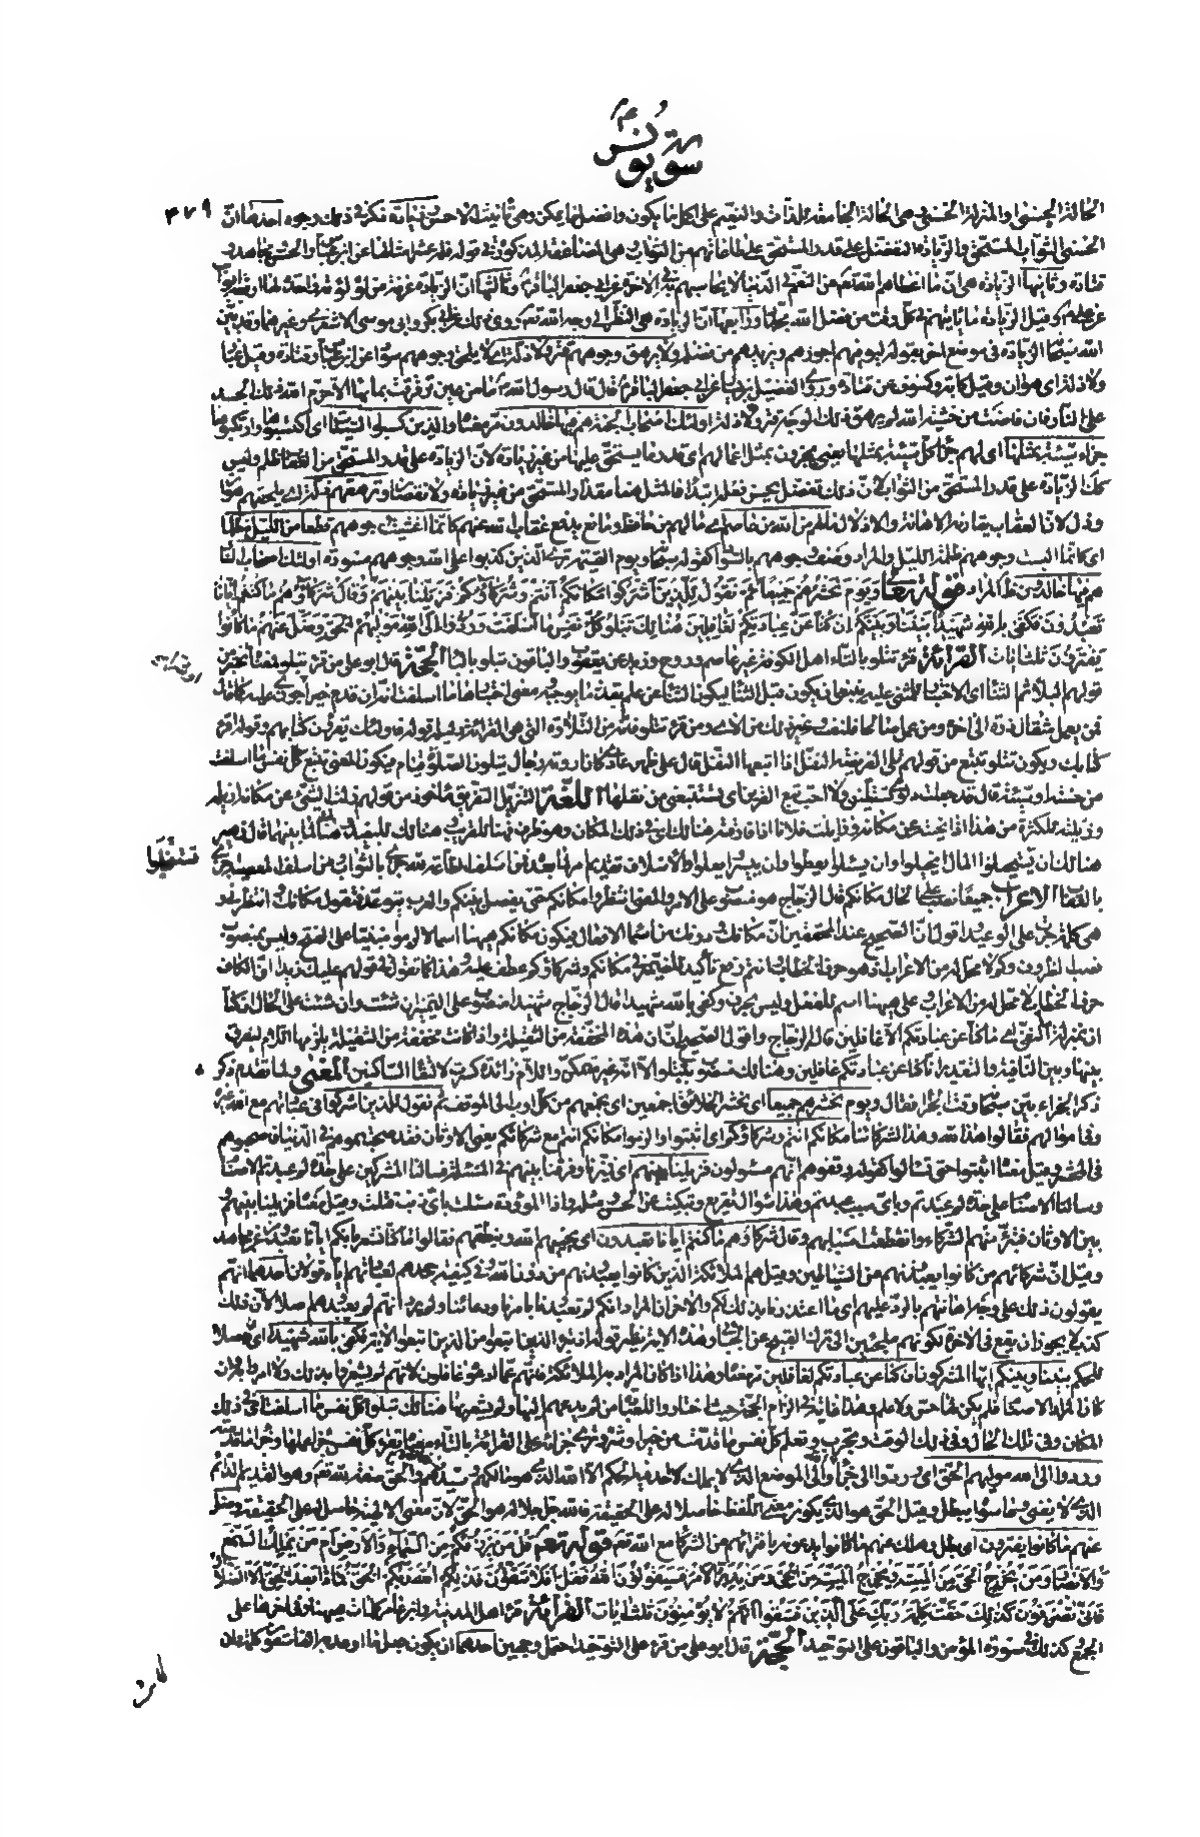 سورة يونس
٤٧٩
الحالة الحسنى والمنزلة الحسنى وهى الحالة الجامعة للذات والنعيم على اكمل ما يكون وافضل ما يمكن وهى تأنيث الاحسن وزيادة ذكر فى ذلك وجوه احدها ان
الحسنى الثواب المستحق والزيادة التفضل على قدر المستحق على طاعاتهم من الثواب وهى المضاعفة المذكورة فى قوله فله عشر امثالها عن ابن عباس والحسن ومجاهد و
قتادة وثانيها الزيادة هى ان ما اعطاهم الله تعم من النعم فى الدنيا لا يحاسبهم به فى الاخرة عن ابى جعفر الباقر وثالثها ان الزيادة غرفة من لؤلؤة واحدة لها اربعة ابواب
عن على وقيل الزيادة ما يأتيهم فى كل وقت من فضل الله مجددا ورابعها ان الزيادة هى النظر الى وجه الله تعم روى ذلك عن ابى بكر وابى موسى الاشعرى وغيرهما وقد بين
الله سبحانه الزيادة فى موضع اخر بقوله ليوفيهم اجورهم ويزيدهم من فضله ولا يرهق وجوههم قتر ولا ذلة اى لا يلحق وجوههم سواد عن ابن عباس وقتادة وقيل غبار
ولا ذلة اى هوان وقيل كابة وكسوف عن قتادة وروى الفضيل بن يسار عن ابى جعفر الباقر قال قال رسول الله ما من عين ترقرقت بمائها الا حرم الله ذلك الجسد
على النار فان فاضت من خشية الله لم يرهق ذلك الوجه قتر ولا ذلة اولئك اصحاب الجنة هم فيها خالدون مر معناه والذين كسبوا السيئات اى اكتسبوها وارتكبوها
جزاء سيئة بمثلها اى لهم جزاء كل سيئة بمثلها يعنى يجزون بمثل اعمالهم اى قدر ما يستحق عليها من غير زيادة لان الزيادة على قدر المستحق من العقاب ظلم وليس
كذلك الزيادة على قدر المستحق من الثواب لان ذلك تفضل يحسن فعله ابتداء فالمثل هنا مقدار المستحق من غير زيادة ولا نقصان وترهقهم ذلة اى يلحقهم هوان
وذل لان العقاب يقارنه الاهانة والاذلال مالهم من الله من عاصم اى مالهم من حافظ ومانع يدفع عقاب الله عنهم كانما اغشيت وجوههم قطعا من الليل مظلما
اى كانما البست وجوههم ظلمة الليل والمراد وصف وجوههم بالسواد كقوله سبحانه ويوم القيمة ترى الذين كذبوا على الله وجوههم مسودة اولئك اصحاب النار
هم فيها خالدون ظاهر المراد قوله تعالى ويوم نحشرهم جميعا ثم نقول للذين اشركوا مكانكم انتم وشركاؤكم فزيلنا بينهم وقال شركاؤهم ما كنتم ايانا
تعبدون فكفى بالله شهيدا بيننا وبينكم ان كنا عن عبادتكم لغافلين هنالك تبلو كل نفس ما اسلفت وردوا الى الله موليهم الحق وضل عنهم ما كانوا
يفترون ثلث ايات القراءة قرء تتلو بالتاء اهل الكوفة غير عاصم وروح وزيد عن يعقوب والباقون تبلو بالباء الحجة قال ابو على من قرء تبلو فمعناه تختبر من
قولهم البلاء ثم الثناء اى الاختبار للمثنى عليه ينبغى ان يكون قبل الثناء ليكون الثناء عن علم بقدر ما يوجبه ومعنى اختبارها ما اسلفت انه ان قدم خيرا جوزى عليه كما قال
فمن يعمل مثقال ذرة الى اخره ومن عمل صالحا فلنفسه وغير ذلك من الاى ومن قرء تتلو فانه من التلاوة التى هى القراءة ودليله قوله فاولئك يقرؤن كتابهم وقوله اقرء
كتابك ويكون تتلو تتبع من قولهم تلى الفريضة النفل اذا اتبعها النفل قال على ظهر عادى كان ارومه رجال يتلون الصلوة قيام فيكون المعنى تتبع كل نفس ما اسلفت
من حسنة او سيئة قال قد جعلت دلوى تستتلينى ولا احب تبع القرين اى تستتبعنى من ثقلها اللغة التزييل التفريق مأخوذ من قولهم زلت الشىء عن مكانه ازيله
وزيلته للكثرة من هذا اذا نحيته عن مكانه وزايلت فلانا اذا فارقته هنالك اى فى ذلك المكان وهو ظرف فهنا للقريب وهنالك للبعيد وهناك لما بينهما قال زهير
هنالك ان يستخبلوا المال يخبلوا وان يسئلوا يعطوا وان ييسروا يغلوا والاسلاف تقديم امر لما بعده فمن اسلف الطاعة لله جزى بالثواب ومن اسلف المعصية جزى
بالعقاب الاعراب جميعا نصب على الحال مكانكم قال الزجاج هو منصوب على الامر والمعنى انتظروا مكانكم حتى يفصل بينكم والعرب تتوعد فتقول مكانك وانتظر فـ
هى كلمة جرت على الوعيد اقول ان الصحيح عند المحققين ان مكانك ودونك من اسماء الافعال فيكون مكانكم ههنا اسما لالزموا مبنيا على الفتح وليس بمنصوب
نصب الظروف وكم لا محل له من الاعراب اذ هو حرف الخطاب وانتم رفع تأكيد للضمير فى مكانكم وشركاؤكم عطف عليه وهذا كما تقول فى قولهم عليك زيدا ان الكاف
حرف الخطاب لا محل له من الاعراب وعلى ههنا اسم للفعل وليس بحرف وكفى بالله شهيدا قال الزجاج شهيدا منصوب على التميز ان شئت وان شئت على الحال ان كنا
ان بمنزلة النفى اى ما كنا عن عبادتكم الا غافلين قال الزجاج واقول الصحيح ان ان هذه المخففة من الثقيلة واذا كانت مخففة من الثقيلة يلزمها اللام ليفرق
بينها وبين النافية والتقدير انا كنا عن عبادتكم غافلين وهنالك منصوب بتبلو الا انه غير متمكن واللام زائدة كسرت لالتقاء الساكنين المعنى ولما تقدم ذكر
ذكر الجزاء بين سبحانه وقت الجزاء فقال ويوم نحشرهم جميعا اى نحشر الخلائق اجمعين اى نجمعهم من كل اوب الى الموقف ثم نقول للذين اشركوا فى عباداتهم مع الله غيره
وفى اموالهم فقالوا هذا لله وهذا لشركائنا مكانكم انتم وشركاؤكم اى اثبتوا والزموا مكانكم انتم مع شركائكم يعنى الاوثان فقد صحبتموهم فى الدنيا فاصحبوهم
فى المحشر وقيل معناه اثبتوا حتى تسئلوا كقوله وقفوهم انهم مسئولون فزيلنا بينهم اى فميزنا وفرقنا بينهم فى المسئلة فسالنا المشركين على حدة لم عبدتم الاصنام
وسالنا الاصنام على حدة لم عبدتم وباى سبب عبدتم وهذا سؤال تقريع وتبكيت عن الحسن مثله واذا الموؤدة سئلت باى ذنب قتلت وقيل معناه فزيلنا بينهم و
بين الاوثان فتبرء منهم الشركاء وانقطعت اسبابهم وقال شركاؤهم ما كنتم ايانا تعبدون اى يحييهم الله وينطقهم فقالوا ما كنا نشعر بانكم ايانا تعبدون عن مجاهد
وقيل ان شركائهم من كانوا يعبدونهم من الشياطين وقيل هم الملائكة الذين كانوا يعبدونهم من دون الله وفى كيفية جحدهم لعبادتهم اياه قولان احدهما انهم
يقولون ذلك على وجه اهانتهم بالرد عليهم اى ما اعتذرنا بذلك لكم والاخر ان المراد انكم لم تعبدونا بامرنا ودعائنا ولم يرد انهم لم يعبدوهم اصلا لان ذلك
كذب لا يجوز ان يقع فى الاخرة لكونهم ملجئين الى ترك القبيح عن الجبائى وهذه الاية نظير قوله اذ تبرء الذين اتبعوا من الذين اتبعوا الاية فكفى بالله شهيدا اى فاصلا
للحكم بيننا وبينكم ايها المشركون ان كنا عن عبادتكم لغافلين مر معناه وهذا اذا كان المراد به الملائكة فانهم عما ادعوه غافلون لانهم لم يشعروا بذلك ولا امروا به وان
كان المراد الاصنام فلم يكن لها حس ولا علم وهذا غاية فى الزام الحجة حيث اختاروا للعبادة من لم يدعهم اليها ولم يشعر بها هنالك تبلو كل نفس ما اسلفت اى فى ذلك
المكان وفى تلك الحال وفى ذلك الوقت تختبر وتعلم كل نفس ما قدمت من خير او شر وترى جزائه وعلى القراءة بالتاء معناه تقرء كل نفس جزاء عملها وجزاء ما قدمته
وردوا الى الله موليهم الحق اى وردوا الى جزاء الله والى الموضع الذى لا يملك لاحد فيه الحكم الا الله الذى هو مالكهم وسيدهم والحق صفة لله تعم وهو القديم الدائم
الذى لا يفنى وما سواه يبطل وقيل الحق هو الذى يكون معنى اللفظ حاصلا له على الحقيقة فالله جل جلاله هو الحق لان معنى الالهية حاصل له على الحقيقة وضل
عنهم ما كانوا يفترون اى بطل وهلك عنهم ما كانوا يدعونه بافترائهم من الشركاء مع الله تعم قوله تعم قل من يرزقكم من السماء والارض ام من يملك السمع
والابصار ومن يخرج الحى من الميت ويخرج الميت من الحى ومن يدبر الامر فسيقولون الله فقل افلا تتقون فذلكم الله ربكم الحق فماذا بعد الحق الا الضلال
فانى تصرفون كذلك حقت كلمة ربك على الذين فسقوا انهم لا يؤمنون ثلث ايات القراءة قرء اهل المدينة وابن عامر كلمات ههنا وفى اخرها على
الجمع كذلك فى سورة المؤمن والباقون على التوحيد الحجة قال ابو على من قرء على التوحيد احتمل وجهين احدهما ان يكون جعل ما اوعد به الفاسقون كلمة وان